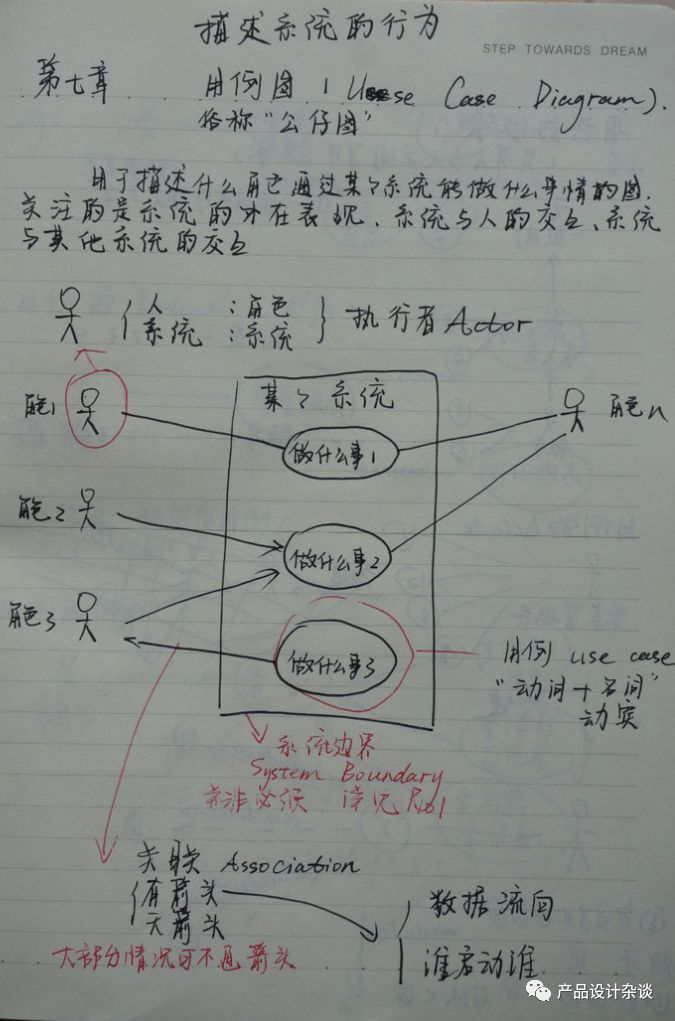 描述系统的行为
STEP TOWARDS DREAM
第七章 用例图 (Use Case Diagram).
俗称"公仔图"
用于描述什么角色通过某个系统能做什么事情的图.
关注的是系统的外在表现、系统与人的交互、系统
与其他系统的交互
人 : 角色
系统 : 系统
执行者 Actor
某个系统
角色1
做什么事1
角色n
角色2
做什么事2
角色3
做什么事3
用例 use case
"动词+名词"
动宾
系统边界
System Boundary
并非必须. 详见 P201
关联 Association
有箭头
无箭头
大部分情况可不画箭头
数据流向
谁启动谁
产品设计杂谈